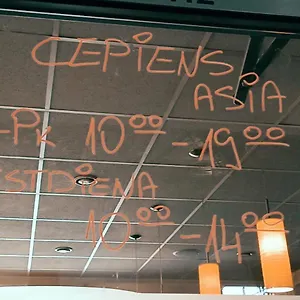 CEPIENS
ASIA
-Pk 10⁰⁰ - 19⁰⁰
STDIENA
10⁰⁰ - 14⁰⁰